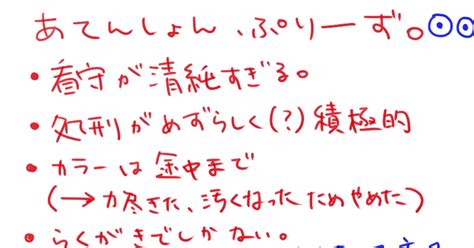 あてんしょん、ぷりーず。
・看守が清純すぎる。
・処刑がめずらしく(?)積極的
・カラーは途中まで
(→力尽きた、汚くなったためやめた)
・らくがきでしかない。